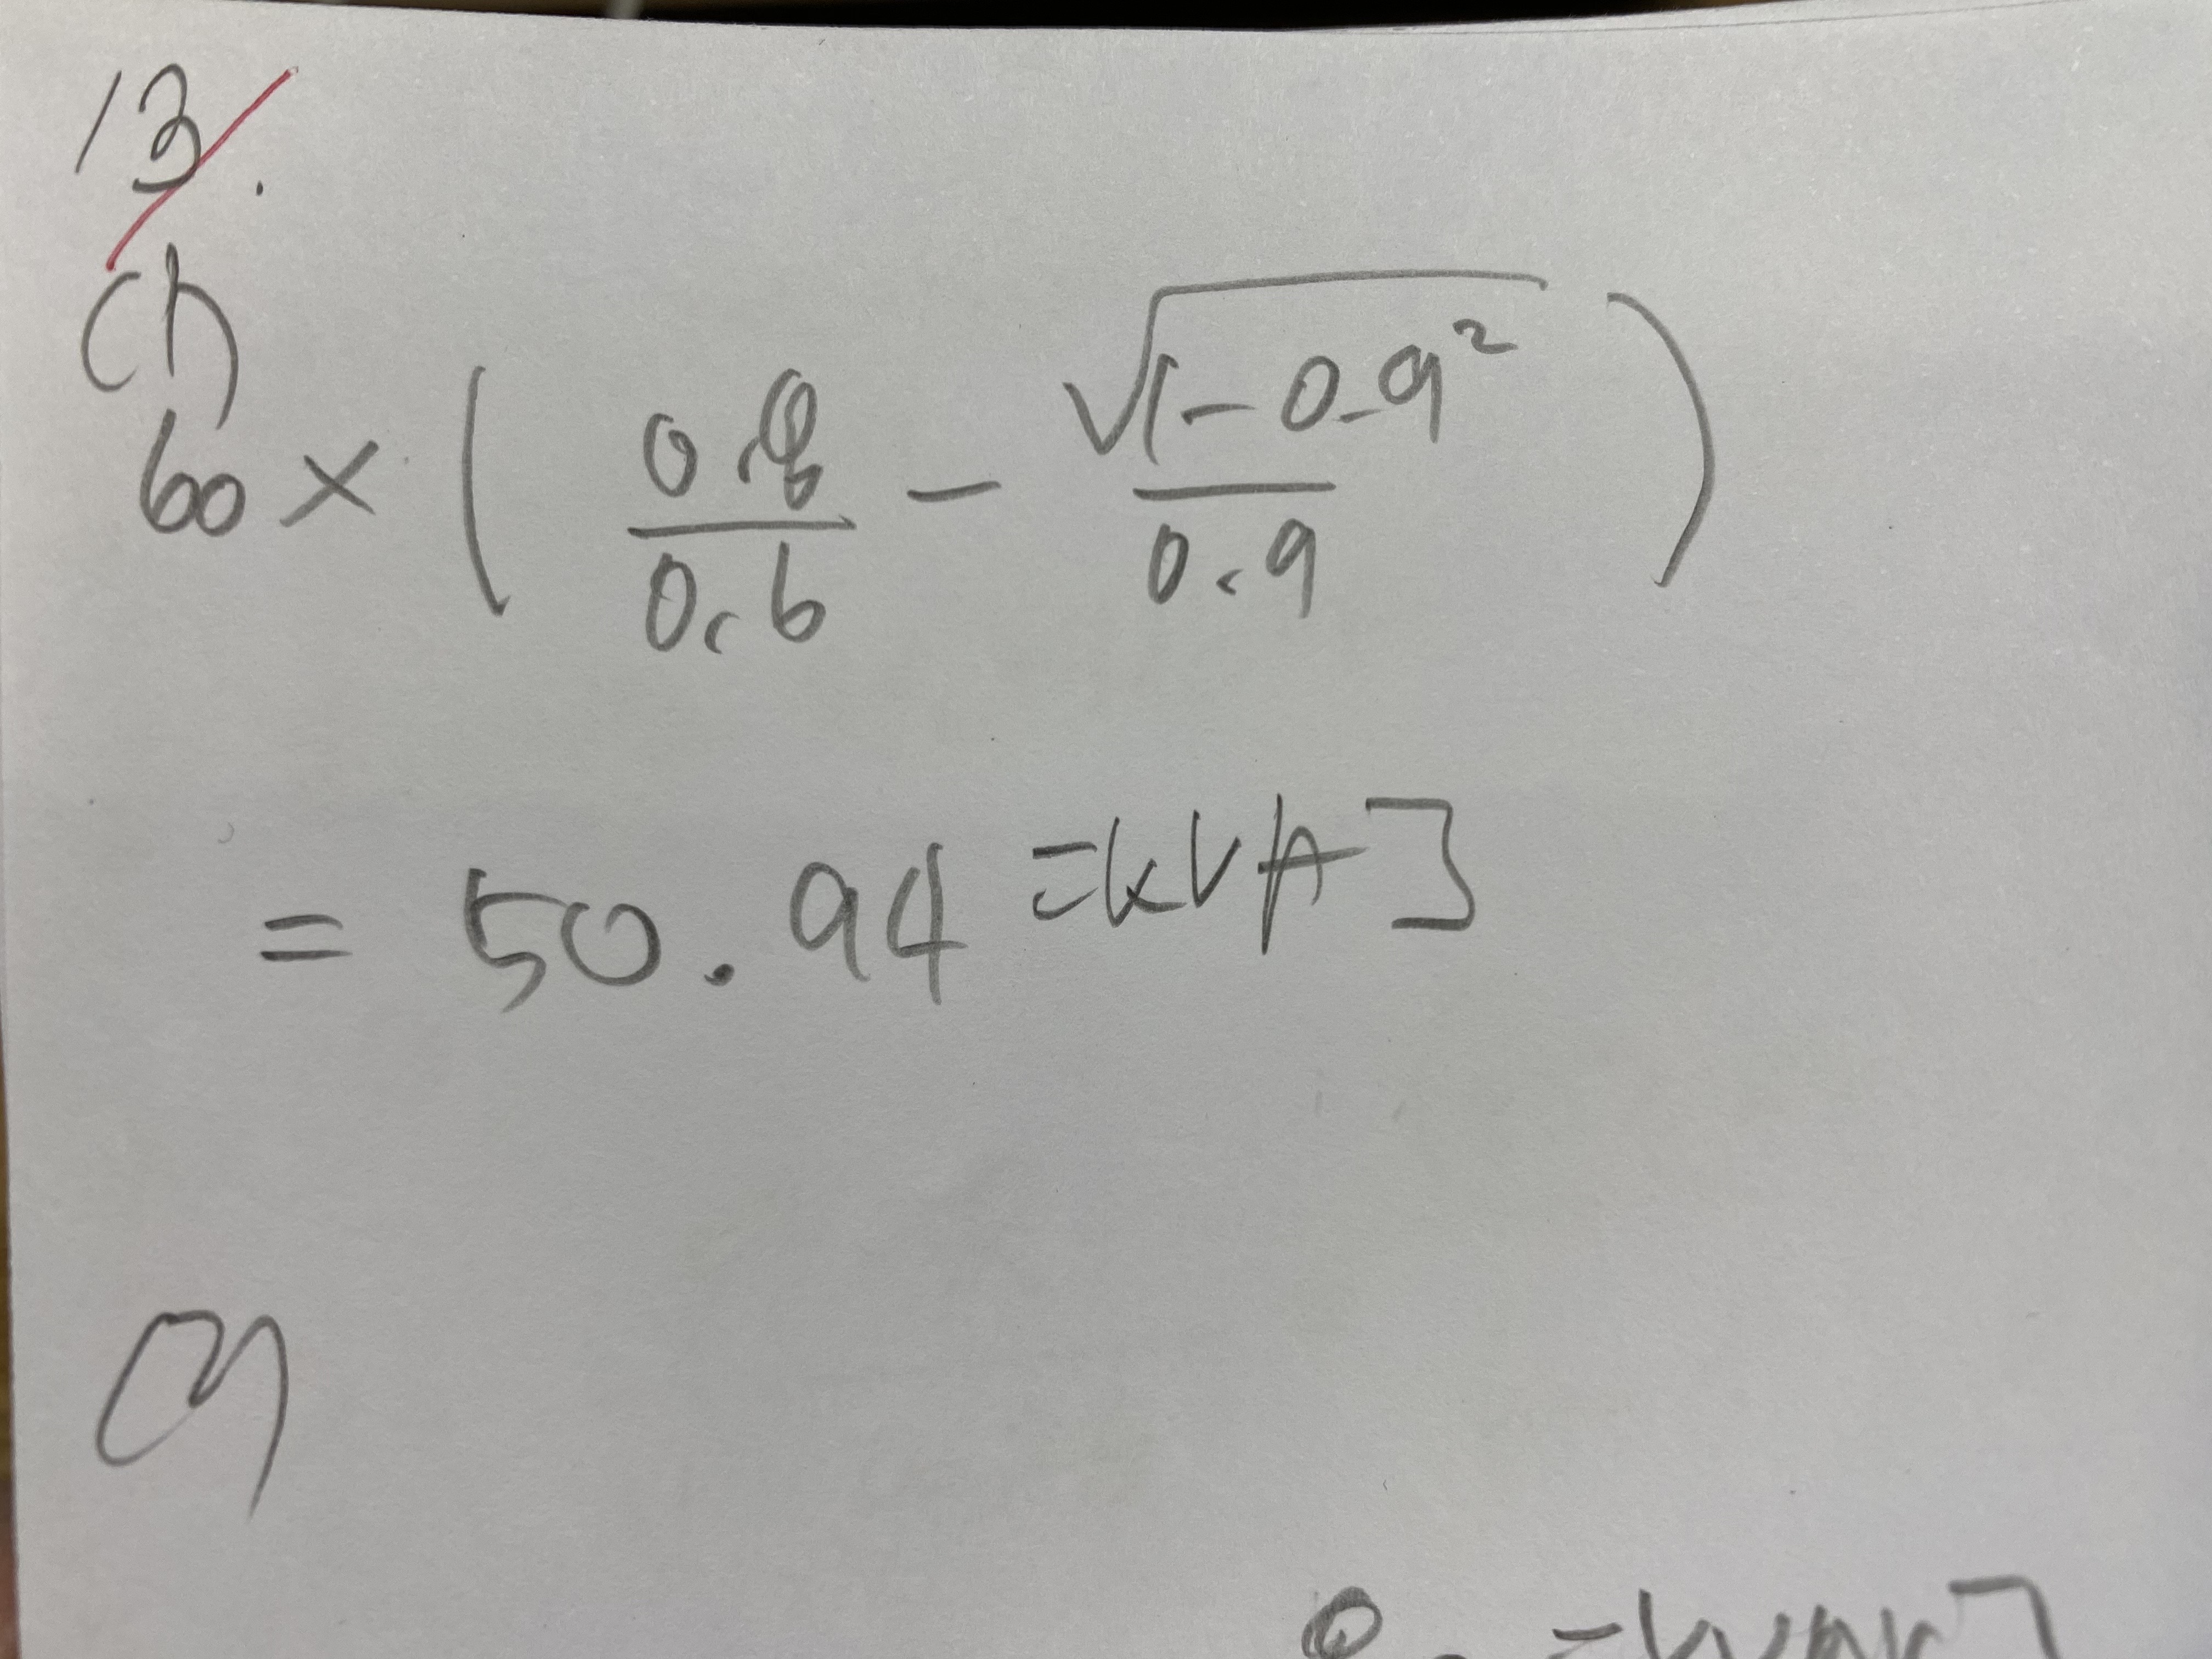 13.
(1)
60 × ( 0.8/0.6 − √1-0.9²/0.9 )
= 50.94 [kVA]
(2)